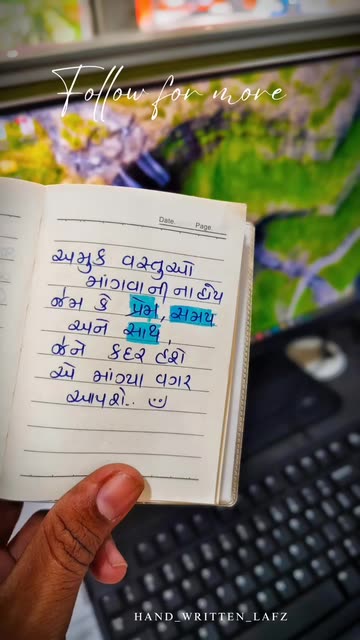 Follow for more
Date. Page.
અમુક વસ્તુઓ
માંગવાની ના હોય
જેમ કે પ્રેમ, સમય
અને સાથ,
જેને કદર હશે
એ માંગ્યા વગર
આપશે.. ☺
HAND_WRITTEN_LAFZ